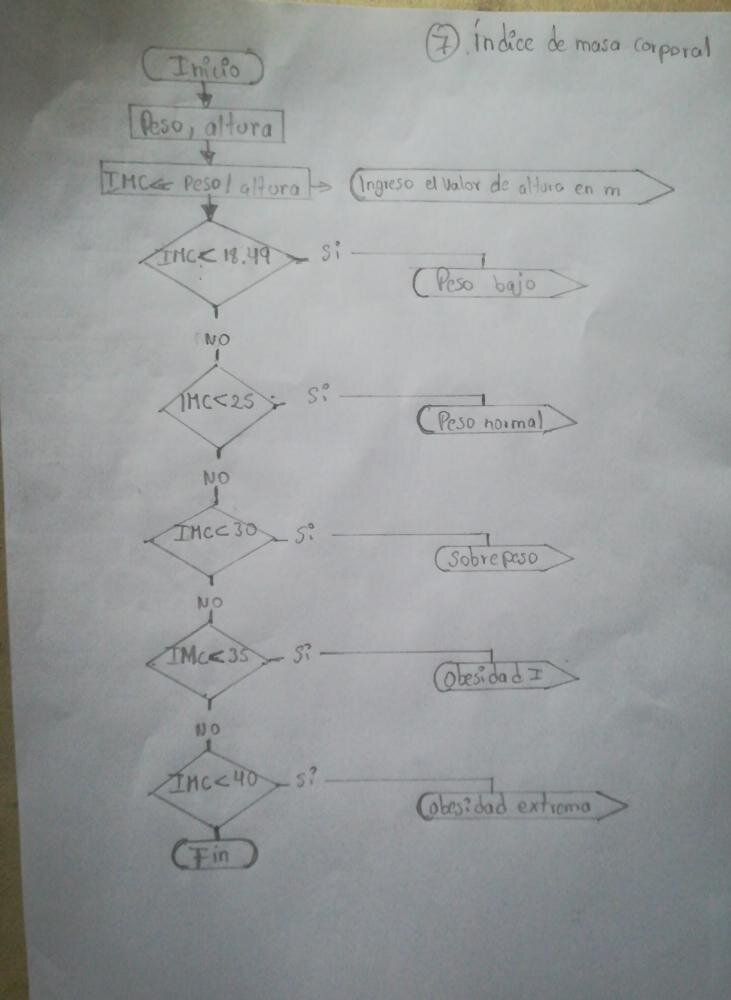 7. Índice de masa corporal
Inicio
Peso, altura
IMC<< Peso/altura
Ingreso el valor de altura en m
IMC< 18.49
Si
Peso bajo
NO
IMC<25
Si
Peso normal
NO
IMC<30
Si
Sobrepeso
NO
IMC<35
Si
Obesidad I
NO
IMC<40
Si
Obesidad extrema
Fin